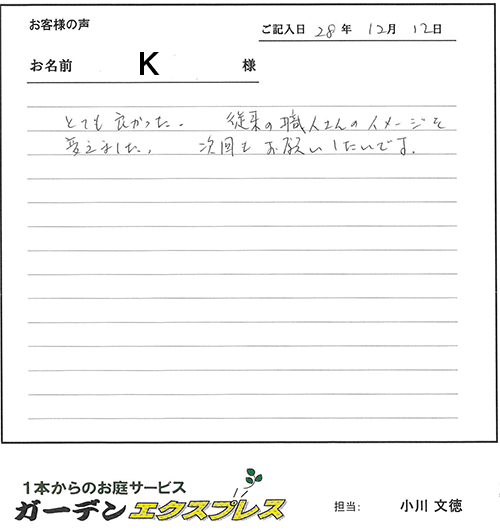 お客様の声
ご記入日 28年 12月 12日
お名前 K 様
とても良かった。 従来の職人さんのイメージを
変えました。 次回もお願いしたいです。
1本からのお庭サービス
ガーデンエクスプレス
担当: 小川 文徳